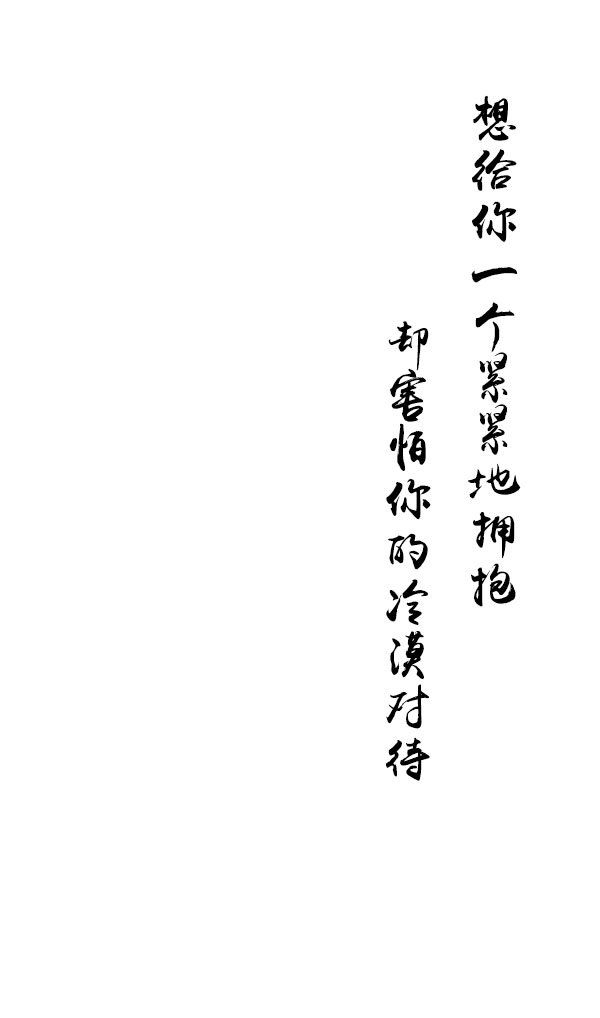 想给你一个紧紧地拥抱
却害怕你的冷漠对待